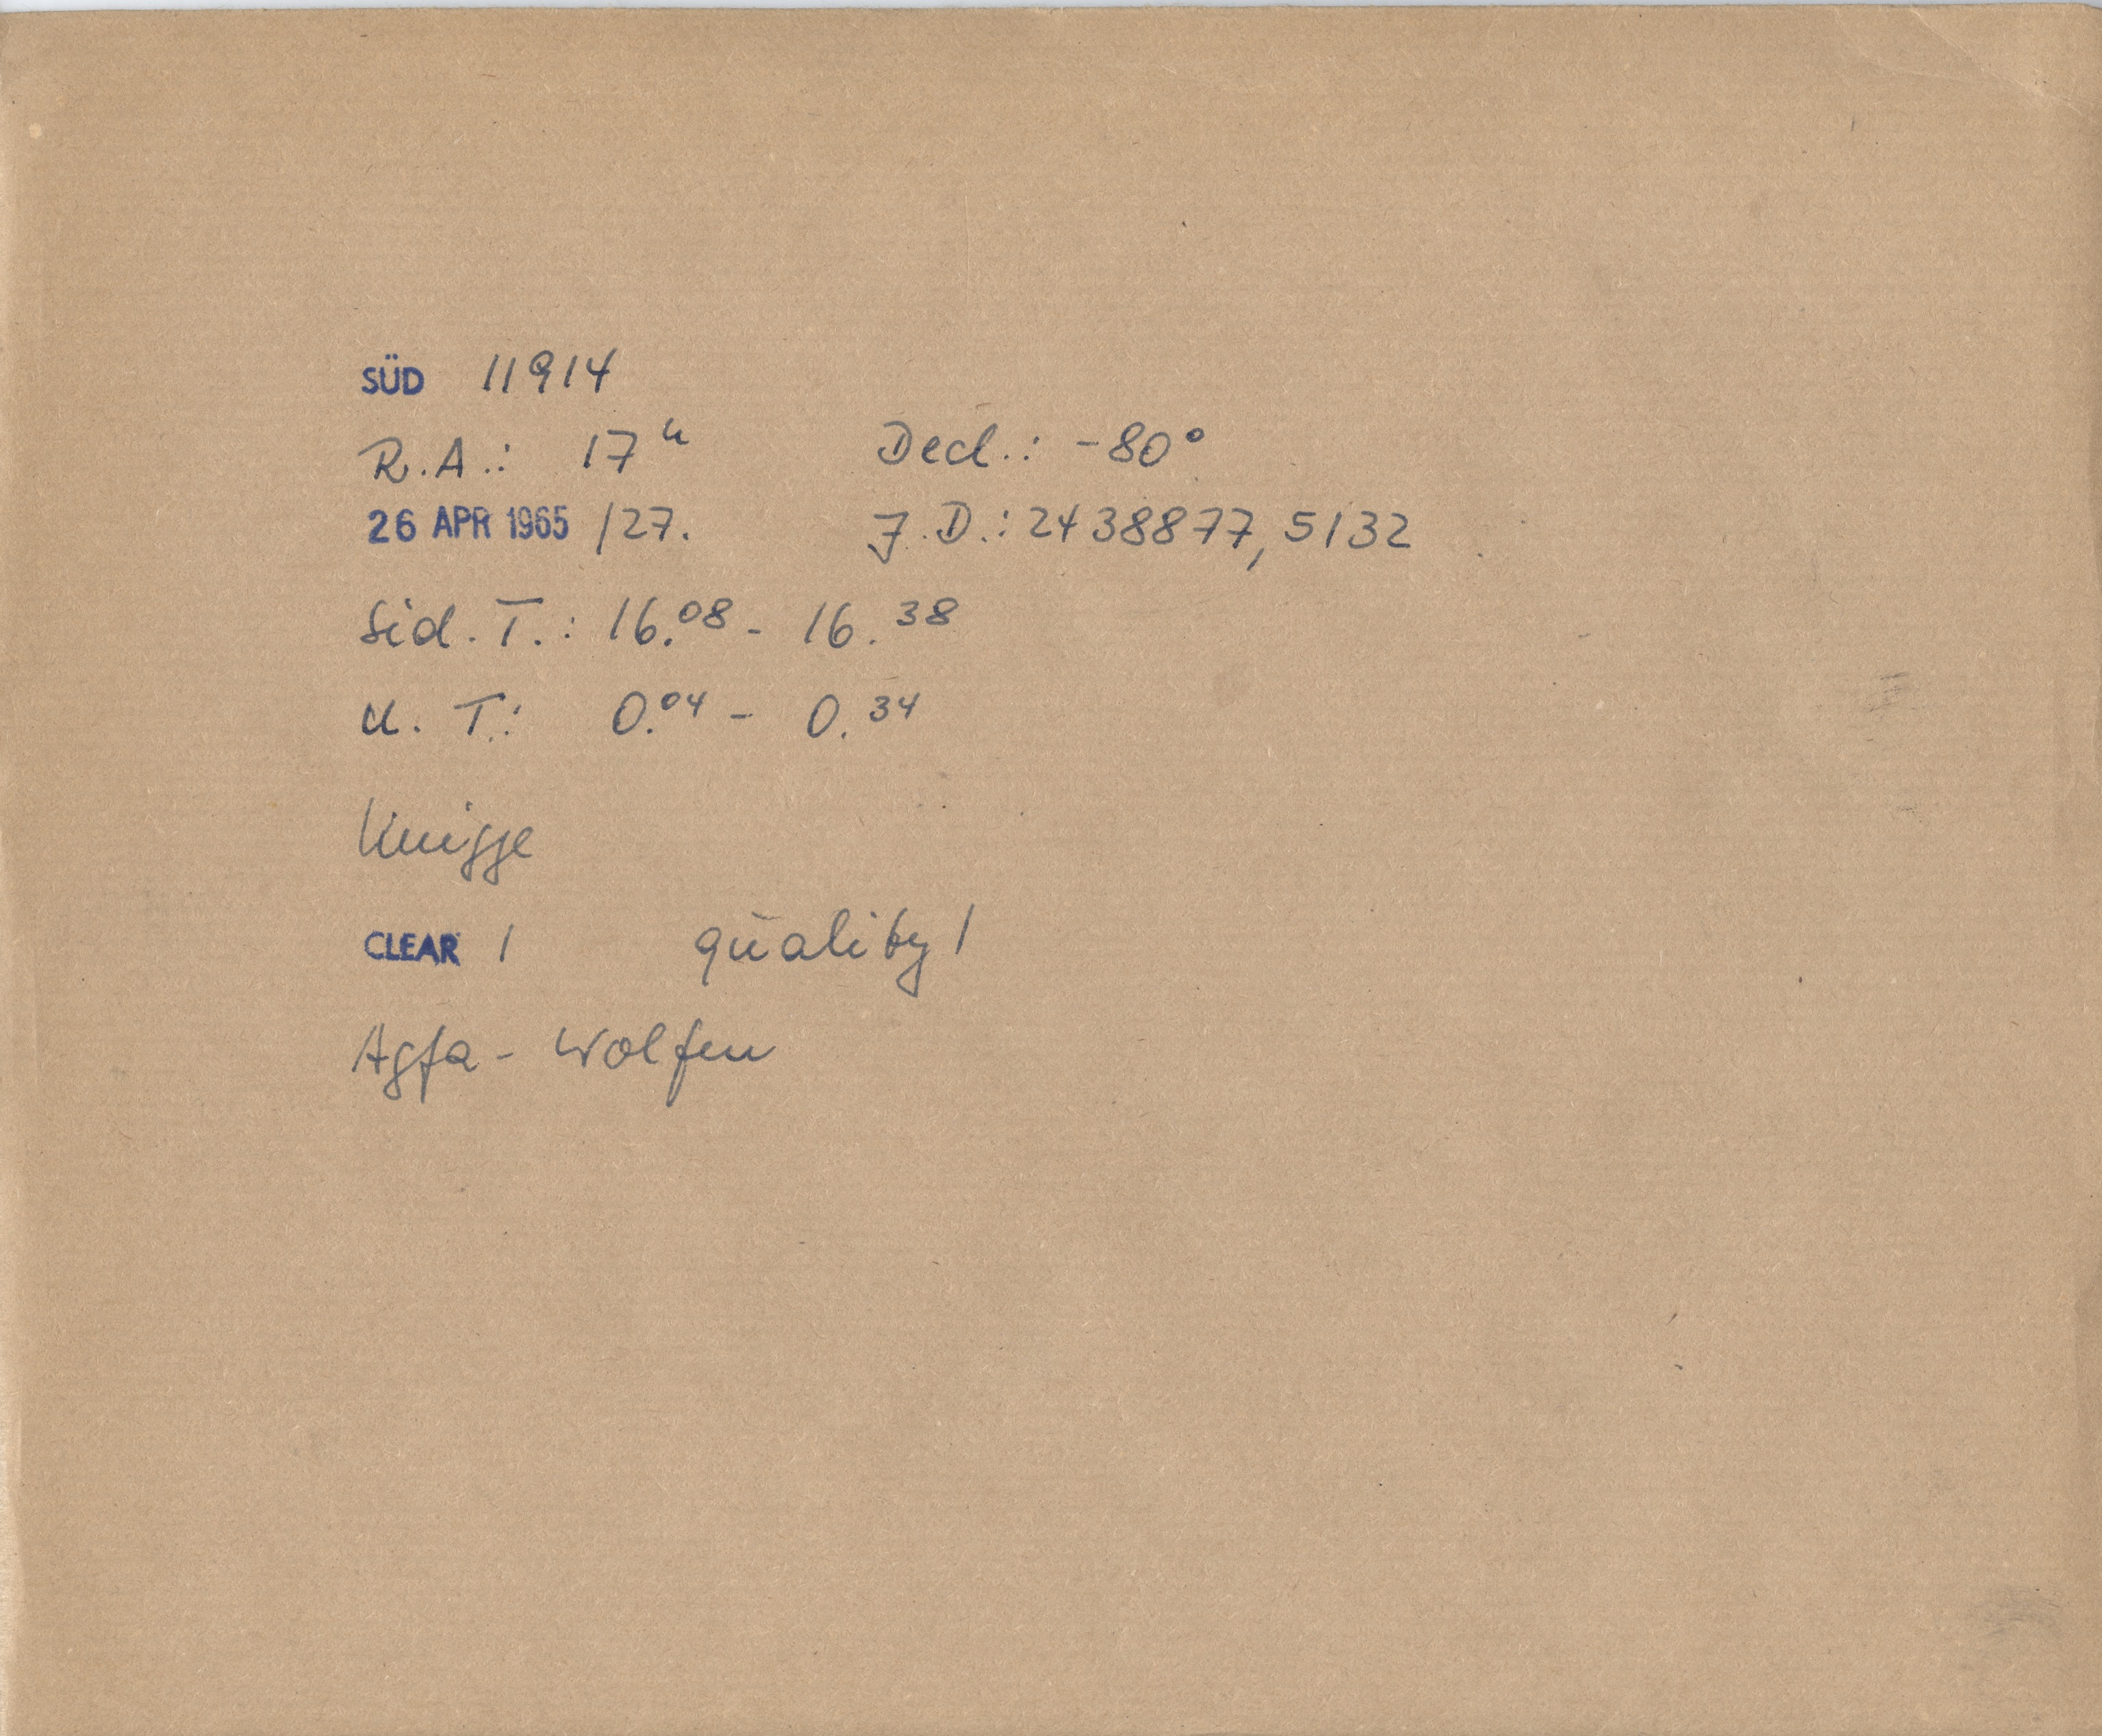 SÜD 11914
R.A.: 17ʰ Decl.: -80°
26 APR 1965 /27. J.D.: 2438877,5132
Sid. T.: 16.08 - 16.38
U. T.: 0.04 - 0.34
Knigge
CLEAR 1 quality 1
Agfa - Wolfen